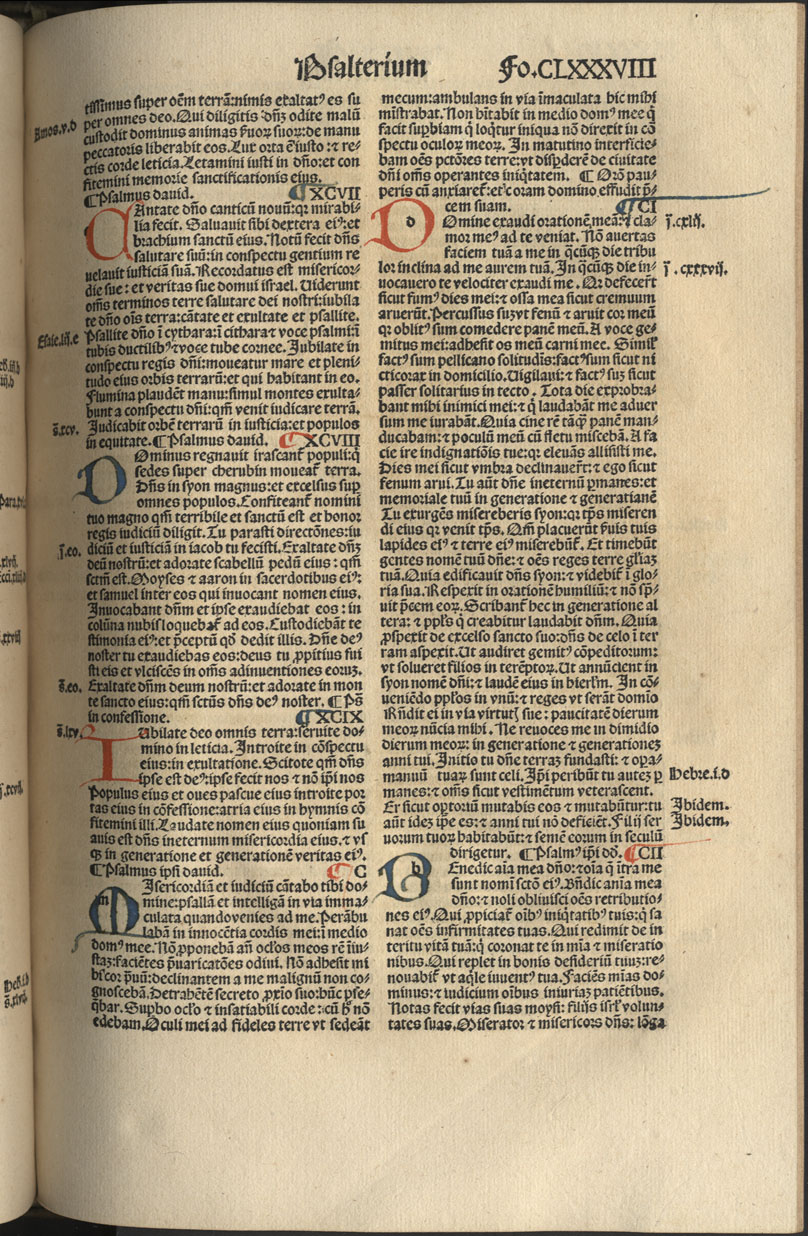 Psalterium Fo.CLXXXVIII
tissimus super oēm terrā:nimis exaltatꝰ es su
per omnes deo.Qui diligitis dn̄ʒ odite malū
custodit dominus animas suoꝝ:de manu
peccatoris liberabit eos.Lux orta ē iusto:⁊ re⸗
ctis corde leticia.Letamini iusti in dn̄o:et con
fitemini memorie sanctificationis eius.
¶Psalmus dauid. ¶XCVII
CAntate dn̄o canticū nouū:qꝛ mirabi⸗
lia fecit. Saluauit sibi dextera eiꝰ:et
brachium sanctū eius. Notū fecit dn̄s
salutare suū:in conspectu gentium re
uelauit iusticiā suā. Recordatus est misericor⸗
die sue: et veritas sue domui israel. Uiderunt
om̄s terminos terre salutare dei nostri:iubila
te dn̄o oīs terra:cātate et exultate et psallite.
Psallite dn̄o ī cythara:ī cithara ⁊ voce psalmi:ī
tubis ductilibꝰ ⁊ voce tube cornee. Jubilate in
conspectu regis dn̄i:moueatur mare et pleni⸗
tudo eius orbis terrarū:et qui habitant in eo.
Flumina plaudēt manu:simul montes exulta⸗
bunt a conspectu dn̄i:qm̄ venit iudicare terrā.
Judicabit orbē terrarū in iusticia:et populos
in equitate.¶Psalmus dauid. ¶XCVIII
DOminus regnauit irascant̄ populi:q̄
sedes super cherubin moueat̄ terra.
Dn̄s in syon magnus:et excelsus suꝑ
omnes populos.Confiteant̄ nomini
tuo magno qm̄ terribile et sanctū est et honor
regis iudiciū diligit. Tu parasti directōnes:iu
diciū et iusticiā in iacob tu fecisti.Exaltate dn̄ʒ
deū nostrū:et adorate scabellū pedū eius: qm̄
sctm̄ est.Moyses ⁊ aaron in sacerdotibus eiꝰ:
et samuel inter eos qui inuocant nomen eius.
Inuocabant dn̄m et ipse exaudiebat eos: in
colūna nubis loquebat̄ ad eos.Custodiebāt te
stimonia eiꝰ:et p̄ceptū qd̄ dedit illis. Dn̄e deꝰ
noster tu exaudiebas eos:deus tu ꝓpitius fui
sti eis et vlciscēs in om̄s adinuentiones eoruʒ.
Exaltate dn̄m deum nostrū:et adorate in mon
te sancto eius:qm̄ sctūs dn̄s deꝰ noster. ¶Ps̄
in confessione. ¶XCIX
IUbilate deo omnis terra:seruite do⸗
mino in leticia. Introite in cōspectu
eius:in exultatione. Scitote qm̄ dn̄s
ipse est deꝰ:ipse fecit nos ⁊ nō ip̄i nos
Populus eius et oues pascue eius introite por
tas eius in cōfessione:atria eius in hymnis cō
fitemini illi.Laudate nomen eius quoniam su
auis est dn̄s ineternum misericordia eius.⁊ vs
qꝫ in generatione et generationē veritas eiꝰ.
¶Psalmus ipsi dauid. ¶C
MIsericordiā et iudiciū cātabo tibi do⸗
mine:psallā et intelligā in via imma⸗
culata quando venies ad me.Perābu
labā in innocētia cordis mei:ī medio
domꝰ mee.Nō ꝓponebā an̄ oclos meos rē īiu⸗
staʒ:faciētes p̄uaricatōes odiui. Nō adhesit mi
hi cor prauū:declinantem a me malignū non co⸗
gnoscebā.Detrahētē secreto ꝓxīo suo:hūc ꝑse⸗
q̄bar. Suꝑbo oclo ⁊ insatiabili corde:cū h̄ nō
edebam.Oculi mei ad fideles terre vt sedeāt
mecum:ambulans in via īmaculata hic mihi
mīstrabat. Non hītabit in medio domꝰ mee q̄
facit suꝑbiam q̄ loq̄tur iniqua nō direxit in cō
spectu oculoꝝ meoꝝ. In matutino interficie⸗
bam oēs pctōres terre:vt disꝑderē de ciuitate
dn̄i om̄s operantes iniq̄tatem. ¶Orō pau⸗
peris cū anxiaret̄:et coram domino effudit p̄⸗
cem suam. ¶CI
DOmine exaudi orationē meā:⁊ cla⸗
mor meꝰ ad te veniat. Nō auertas
faciem tuā a me in q̄cūqꝫ die tribu
lor inclina ad me aurem tuā. In q̄cūqꝫ die in⸗
uocauero te velociter exaudi me. Qꝛ defecert̄
sicut fumꝰ dies mei:⁊ ossa mea sicut cremuum
aruerūt.Percussus suʒ vt fenū ⁊ aruit cor meū
qꝛ oblitꝰ sum comedere panē meū.A voce ge⸗
mitus mei:adhesit os meū carni mee. Simil̄
factꝰ sum pellicano solitudīs:factꝰ sum sicut ni
cticorax in domicilio.Uigilaui:⁊ factꝰ suʒ sicut
passer solitarius in tecto. Tota die exprobra⸗
bant mihi inimici mei:⁊ q̄ laudabāt me aduer
sum me iurabāt.Quia cinerē tāqꝫ panē man⸗
ducabam:⁊ poculū meū cū fletu miscebā.A fa
cie ire indignatiōis tue:qꝛ eleuās allisisti me.
Dies mei sicut vmbra declinauert̄:⁊ ego sicut
fenum arui.Tu aūt dn̄e ineternū ꝑmanes:et
memoriale tuū in generatione ⁊ generatianē
Tu exurgēs misereberis syon:qꝛ tp̄s miseren
di eius qꝛ venit tp̄s. Qm̄ placuerūt ẜuis tuis
lapides eiꝰ ⁊ terre eiꝰ miserebūt̄. Et timebūt
gentes nomē tuū dn̄e:⁊ oēs reges terre gl̄iaʒ
tuā.Quia edificauit dn̄s syon:⁊ videbit̄ ī glo⸗
ria sua.Respexit in orationē humiliū:⁊ nō sp̄⸗
uit p̄cem eoꝝ.Scribant̄ hec in generatione al
tera: ⁊ ppl̄s q̄ creabitur laudabit dn̄m. Quia
ꝓspexit de excelso sancto suo:dn̄s de celo ī ter
ram aspexit.Ut audiret gemitꝰ cōpeditorum:
vt solueret filios in terēptoꝝ.Ut annūcient in
syon nomē dn̄i:⁊ laudē eius in hierl̄m. In cō⸗
ueniēdo ppl̄os in vnū:⁊ reges vt serāt domīo
Rn̄dit ei in via virtut̄ sue: paucitatē dierum
meoꝝ nūcia mihi. Ne reuoces me in dimidio
dierum meoꝝ: in generatione ⁊ generationeʒ
anni tui. Initio tu dn̄e terraʒ fundasti: ⁊ opa⸗
manuū tuaꝝ sunt celi. Ip̄i peribūt tu auteʒ ꝑ
manes:⁊ om̄s sicut vestimētum veterascent.
Et sicut optoriū mutabis eos ⁊ mutabūtur:tu
aūt ideʒ ip̄e es:⁊ anni tui nō deficiēt.Filij ser
uorum tuoꝝ habitabūt:⁊ semē eorum in seculū
dirigetur. ¶Psalmꝰ ip̄i dd̄. ¶CII
BEnedic aīa mea dn̄o:⁊ oīa q̄ ītra me
sunt nomī sctō eiꝰ.Bn̄dic anīa mea
dn̄o:⁊ noli obliuisci oēs retributio⸗
nes eiꝰ.Qui ꝓpiciat̄ oībꝰ iniq̄tatibꝰ tuis:q̄ sa
nat oēs infirmitates tuas.Qui redimit de in
teritu vitā tuā:q̄ coronat te in mīa ⁊ miseratio
nibus.Qui replet in bonis desideriū tuuʒ:re⸗
nouabit̄ vt aq̄le iuuentꝰ tua.Faciēs mīas do⸗
minus:⁊ iudicium oībus iniuriaʒ patiētibus.
Notas fecit vias suas moysi: filijs isrl̄ volun⸗
tates suas.Miserator ⁊ misericors dn̄s: lōga
Amos.v.d
Esaie.lij.e
s̄.xcv.
j̄.eo.
s̄.eo.
s̄.lxv.
j̄.cxlij.
j̄.cxxxvij.
Hebre.i.d
Ibidem.
Ibidem.